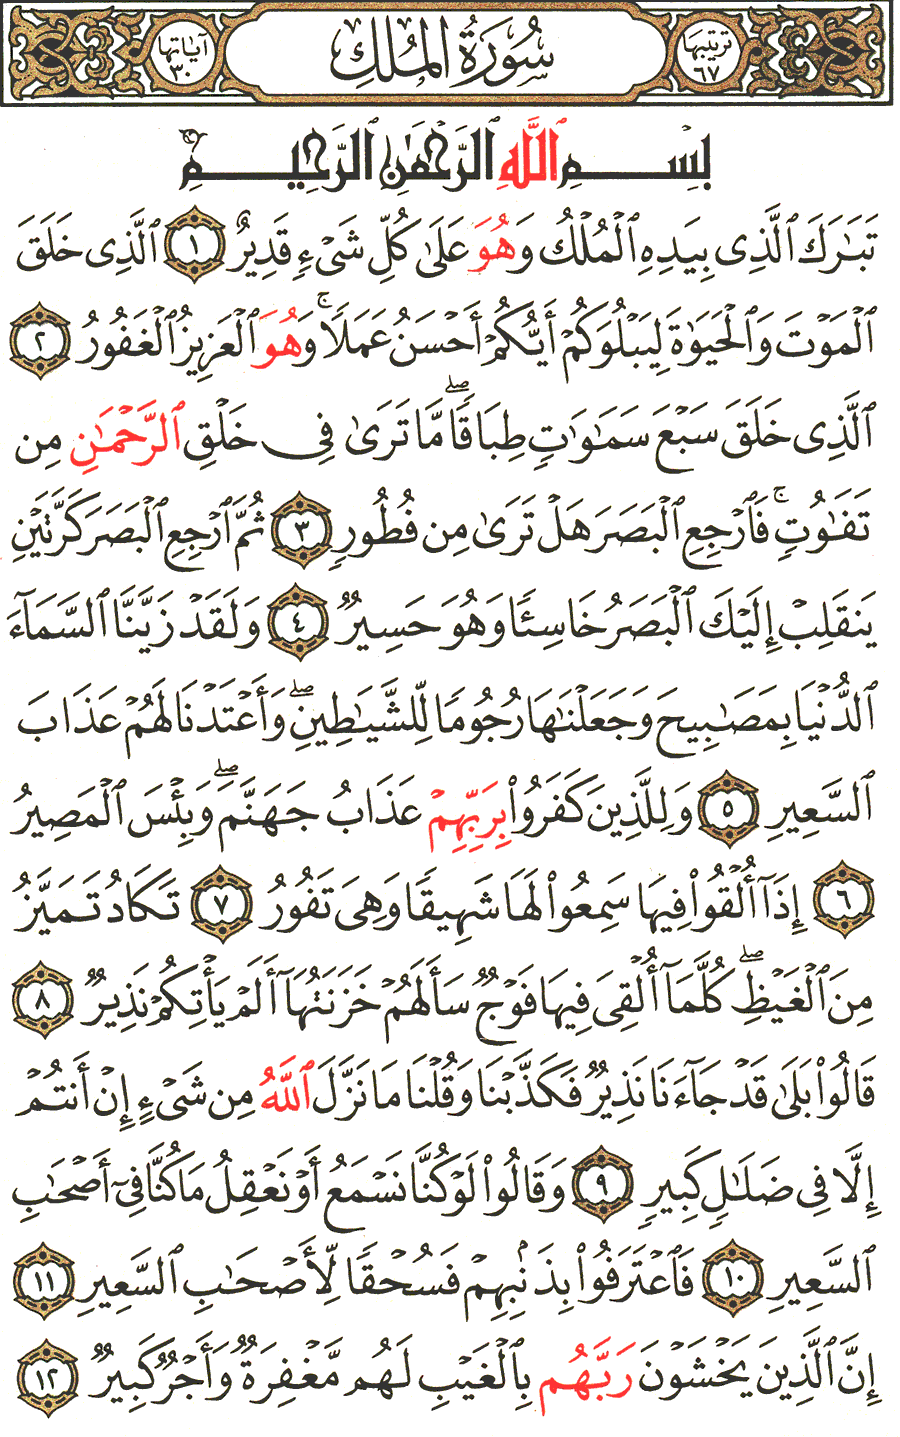 ترتيبها ٦٧ سُورَةُ المُلْكِ آياتها ٣٠
بِسْمِ ٱللَّهِ ٱلرَّحْمَٰنِ ٱلرَّحِيمِ
تَبَٰرَكَ ٱلَّذِى بِيَدِهِ ٱلْمُلْكُ وَهُوَ عَلَىٰ كُلِّ شَىْءٍ قَدِيرٌ ١ ٱلَّذِى خَلَقَ
ٱلْمَوْتَ وَٱلْحَيَوٰةَ لِيَبْلُوَكُمْ أَيُّكُمْ أَحْسَنُ عَمَلًا ۚ وَهُوَ ٱلْعَزِيزُ ٱلْغَفُورُ ٢
ٱلَّذِى خَلَقَ سَبْعَ سَمَٰوَٰتٍ طِبَاقًا ۖ مَّا تَرَىٰ فِى خَلْقِ ٱلرَّحْمَٰنِ مِن
تَفَٰوُتٍ ۚ فَٱرْجِعِ ٱلْبَصَرَ هَلْ تَرَىٰ مِن فُطُورٍ ٣ ثُمَّ ٱرْجِعِ ٱلْبَصَرَ كَرَّتَيْنِ
يَنقَلِبْ إِلَيْكَ ٱلْبَصَرُ خَاسِئًا وَهُوَ حَسِيرٌ ٤ وَلَقَدْ زَيَّنَّا ٱلسَّمَآءَ
ٱلدُّنْيَا بِمَصَٰبِيحَ وَجَعَلْنَٰهَا رُجُومًا لِّلشَّيَٰطِينِ ۖ وَأَعْتَدْنَا لَهُمْ عَذَابَ
ٱلسَّعِيرِ ٥ وَلِلَّذِينَ كَفَرُوا۟ بِرَبِّهِمْ عَذَابُ جَهَنَّمَ ۖ وَبِئْسَ ٱلْمَصِيرُ
٦ إِذَآ أُلْقُوا۟ فِيهَا سَمِعُوا۟ لَهَا شَهِيقًا وَهِىَ تَفُورُ ٧ تَكَادُ تَمَيَّزُ
مِنَ ٱلْغَيْظِ ۖ كُلَّمَآ أُلْقِىَ فِيهَا فَوْجٌ سَأَلَهُمْ خَزَنَتُهَآ أَلَمْ يَأْتِكُمْ نَذِيرٌ ٨
قَالُوا۟ بَلَىٰ قَدْ جَآءَنَا نَذِيرٌ فَكَذَّبْنَا وَقُلْنَا مَا نَزَّلَ ٱللَّهُ مِن شَىْءٍ إِنْ أَنتُمْ
إِلَّا فِى ضَلَٰلٍ كَبِيرٍ ٩ وَقَالُوا۟ لَوْ كُنَّا نَسْمَعُ أَوْ نَعْقِلُ مَا كُنَّا فِىٓ أَصْحَٰبِ
ٱلسَّعِيرِ ١٠ فَٱعْتَرَفُوا۟ بِذَنۢبِهِمْ فَسُحْقًا لِّأَصْحَٰبِ ٱلسَّعِيرِ ١١
إِنَّ ٱلَّذِينَ يَخْشَوْنَ رَبَّهُم بِٱلْغَيْبِ لَهُم مَّغْفِرَةٌ وَأَجْرٌ كَبِيرٌ ١٢